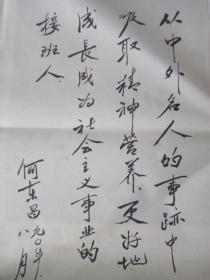 从中外名人的事跡中
吸取精神营养、更好地
成長成为社会主义事业的
接班人.
何东昌
九〇年八月